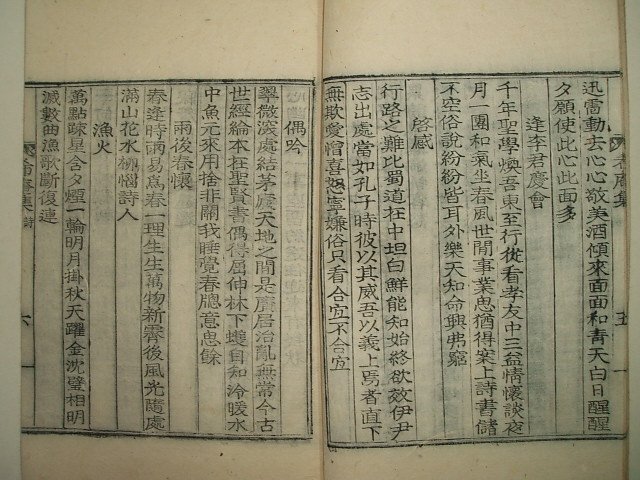 迅雷動去心心敬美酒傾來面面和青天白日醒醒
夕願使此心此面多
逢李君慶會
千年聖學煥吾東至行從看孝友中三益情懷談夜
月一團和氣坐春風世間事業思猶得案上詩書儲
不空俗說紛紛皆耳外樂天知命興弗窮
啓感
行路之難比蜀道在中坦白鮮能知始終欲效伊尹
志出處當如孔子時彼以其威吾以義上焉者直下
無欺愛憎喜怒嫌俗只看合宜不合宜
偶吟
翠微深處結茅廬天地之間是廣居治亂無常今古
世經綸本在聖賢書偶得屈伸林下蠖自知冷暖水
中魚元來用捨非關我睡覺春牕意思餘
雨後春懷
春逢時雨易爲春一理生生萬物新霽後風光隨處
滿山花水柳惱詩人
漁火
萬點疎星含夕煙一輪明月掛秋天躍金沈璧相明
滅數曲漁歌斷復連
庵集
五
六